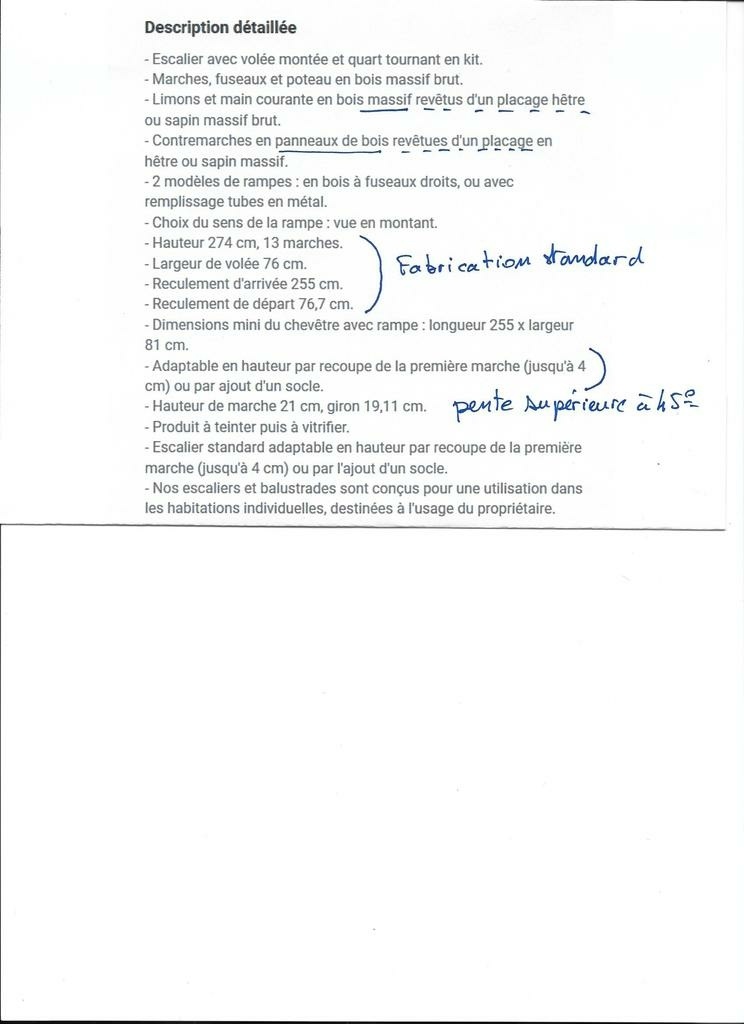 Description détaillée
- Escalier avec volée montée et quart tournant en kit.
- Marches, fuseaux et poteau en bois massif brut.
- Limons et main courante en bois massif revêtus d'un placage hêtre
ou sapin massif brut.
- Contremarches en panneaux de bois revêtues d'un placage en
hêtre ou sapin massif.
- 2 modèles de rampes : en bois à fuseaux droits, ou avec
remplissage tubes en métal.
- Choix du sens de la rampe : vue en montant.
- Hauteur 274 cm, 13 marches.
- Largeur de volée 76 cm.
Fabrication standard
- Reculement d'arrivée 255 cm.
- Reculement de départ 76,7 cm.
- Dimensions mini du chevêtre avec rampe : longueur 255 x largeur
81 cm.
- Adaptable en hauteur par recoupe de la première marche (jusqu'à 4
cm) ou par ajout d'un socle.
- Hauteur de marche 21 cm, giron 19,11 cm.
pente supérieure à 45°
- Produit à teinter puis à vitrifier.
- Escalier standard adaptable en hauteur par recoupe de la première
marche (jusqu'à 4 cm) ou par l'ajout d'un socle.
- Nos escaliers et balustrades sont conçus pour une utilisation dans
les habitations individuelles, destinées à l'usage du propriétaire.